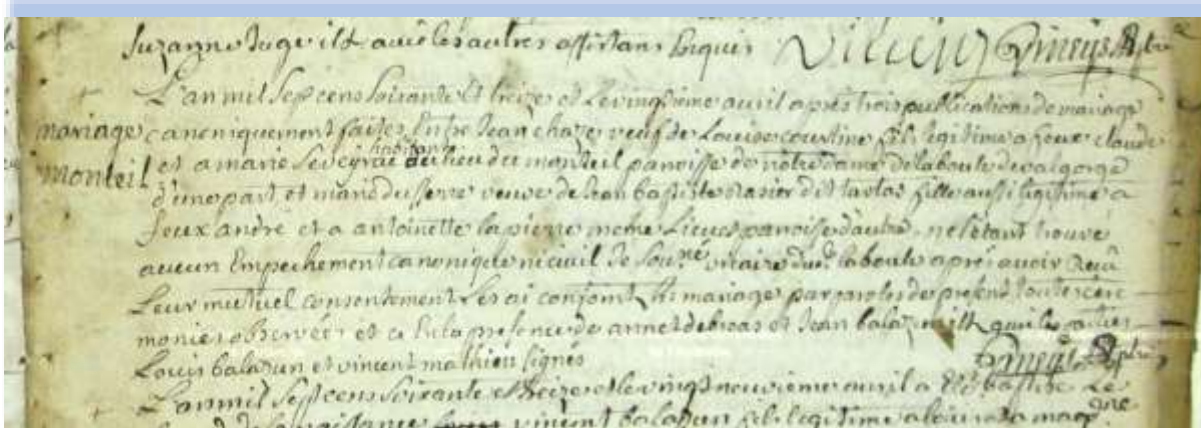 suzanne jugeillet avec les autres assistans requis
L'an mil sept cens soixante et treize et le vingtieme avril apres trois publications de mariage
mariage canoniquement faites Entre Jean chaze veuf de Louise coustine fils legitime a feux claude
monteil et a marie Leveyrac habitant du lieu du monteil paroisse de notre dame de laboule de valgorge
d'une part et marie dusserre veuve de Jean baptiste dit tarlas fille aussi legitime a
feux andré et a antoinette lapierre meme Lieu et paroisse d'autre, ne s'etant trouvé
aucun Empechement canonique ni civil Je sousné vicaire dud. laboule apres avoir Receu
Leur mutuel consentement Les ai conjoint En mariage par paroles de present toutes cere
monies observées et ce En la presence de annet debroas et Jean balazun illt. quil les autres
Louis balazun et vincent mathieu signés
L'an mil sept cens soixante et treize et le vingt neuvieme avril a Eté baptisé Le
vincent balazun fils legitime a Louis et a marg